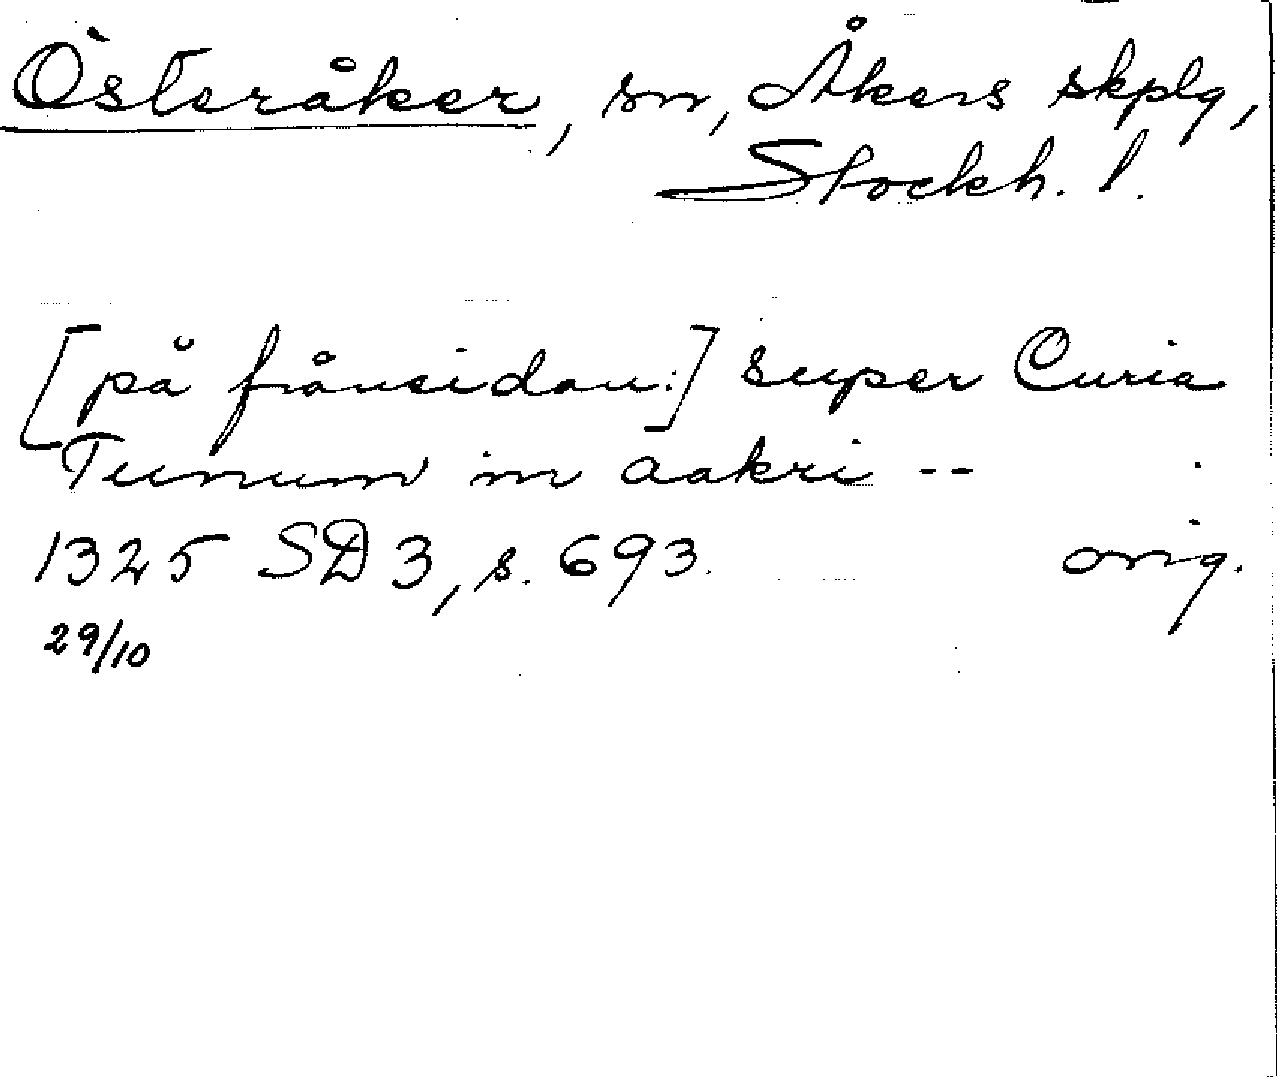 Österåker, sn, Åkers skplg,
Stockh. l.
[på frånsidan:] super Curia
Tunum in aakri --
1325 SD 3, s. 693. orig.
29/10